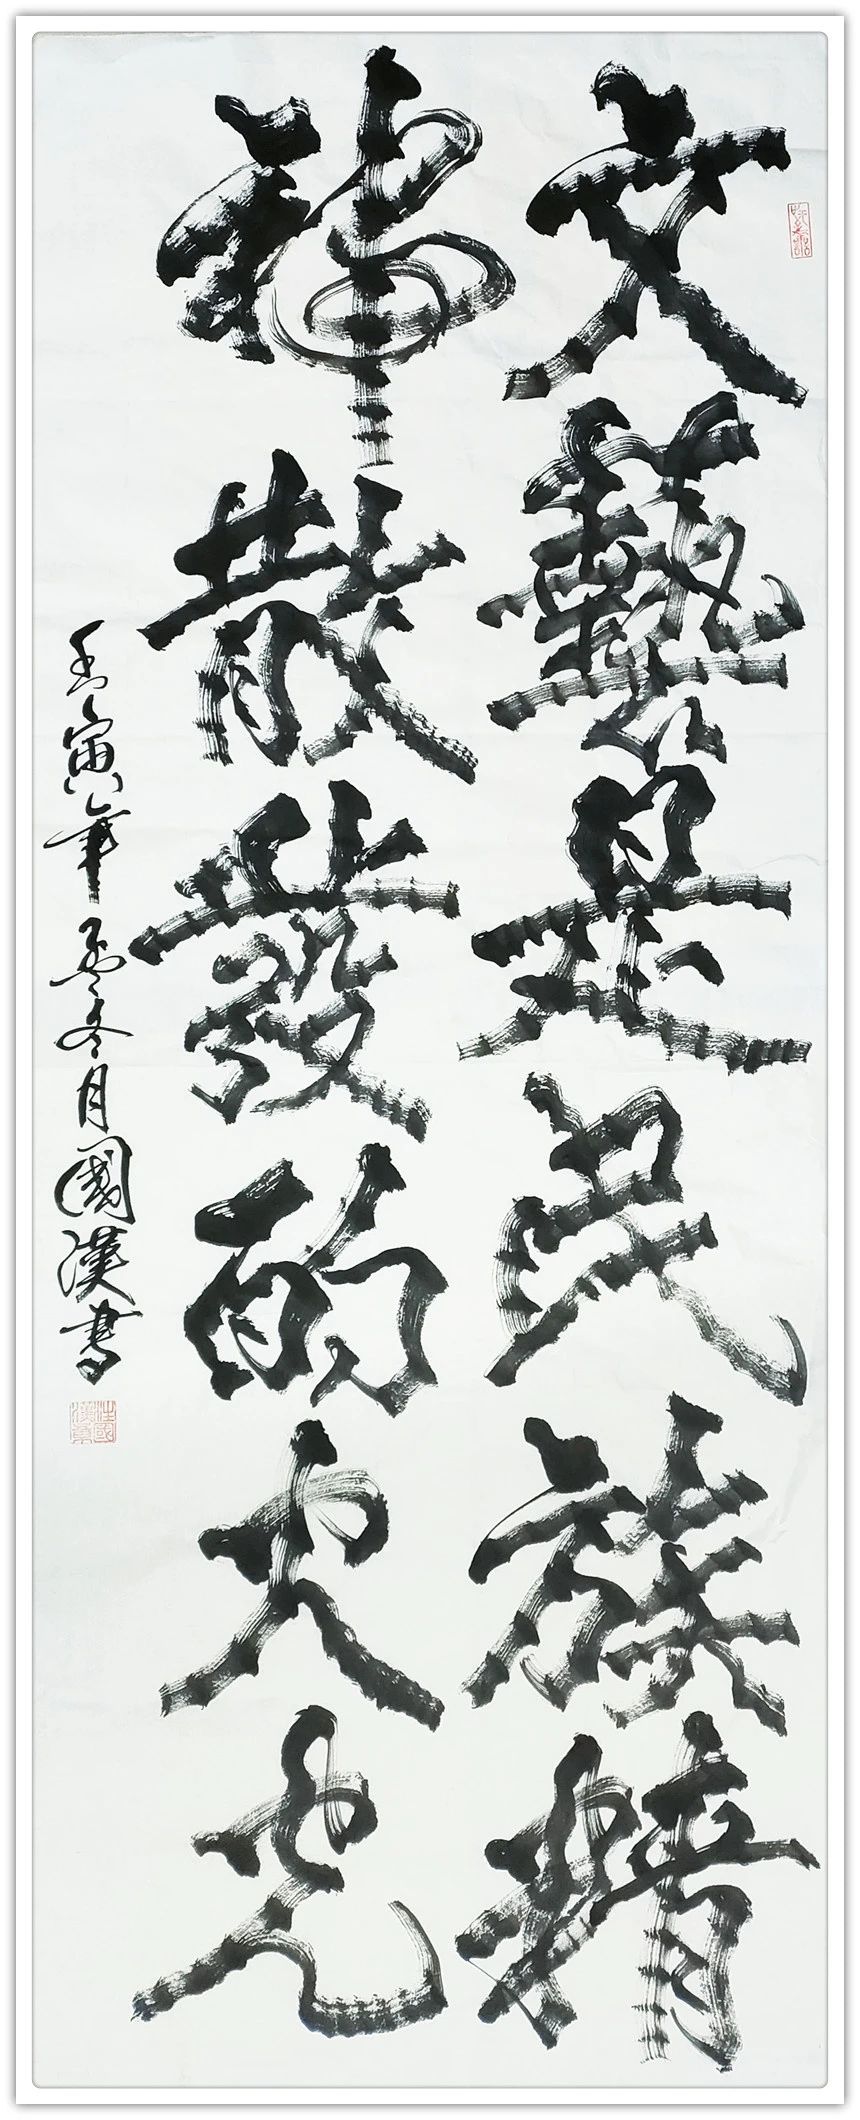 文藝是民族精
神散發的火光
壬寅年孟冬月國漢書